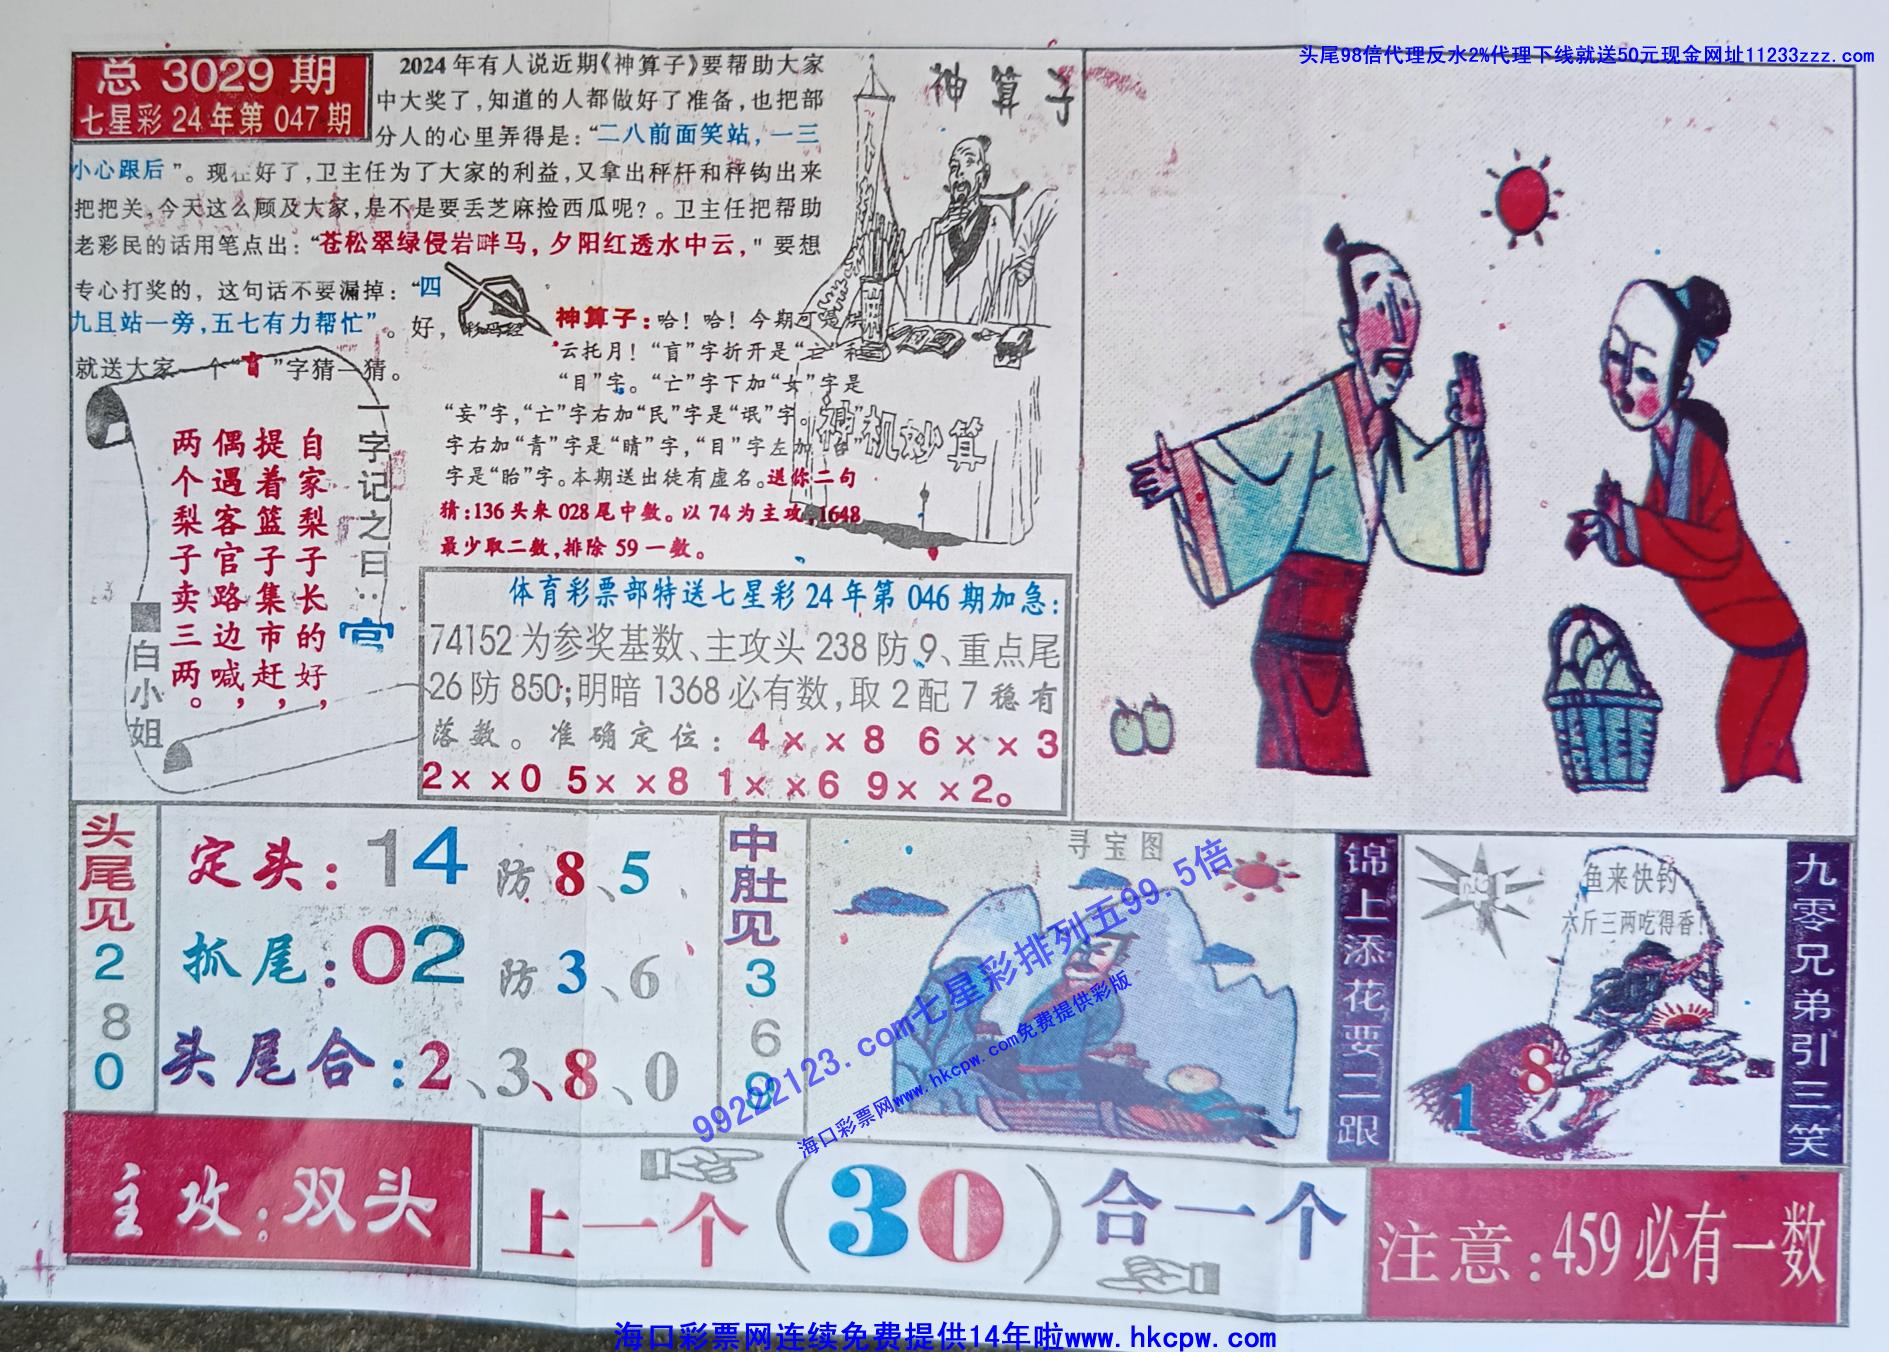 头尾98倍代理反水2%代理下线就送50元现金网址11233zzz.com
总 3029 期
七星彩 24 年第 047 期
2024 年有人说近期《神算子》要帮助大家
中大奖了,知道的人都做好了准备,也把部
分人的心里弄得是:“二八前面笑站,一三
小心跟后”。现在好了,卫主任为了大家的利益,又拿出秤杆和秤钩出来
把把关,今天这么顾及大家,是不是要丢芝麻捡西瓜呢?。卫主任把帮助
老彩民的话用笔点出:“苍松翠绿侵岩畔马,夕阳红透水中云,"要想
专心打奖的,这句话不要漏掉:“四
九且站一旁,五七有力帮忙”。好,
就送大家一个“盲”字猜一猜。
神算子
神算子:哈!哈!今期可
云托月!“盲”字折开是“亡”和
“目”字。“亡”字下加“女”字是
“妄”字,“亡”字右加“民”字是“氓”字。
字右加“青”字是“睛”字,“目”字左加
字是“眙”字。本期送出徒有虚名。送你二句
猜:136 头来 028 尾中数。以 74 为主攻,1648
最少取二数,排除 59 一数。
神机妙算
一字记之曰:宫
自家梨子长的好,
提着篮子集市赶,
偶遇客官路边喊,
两个梨子卖三两。
白小姐
体育彩票部特送七星彩 24 年第 046 期加急:
74152 为参奖基数、主攻头 238 防 9、重点尾
26 防 850;明暗 1368 必有数,取 2 配 7 稳有
落数。准确定位:4××8 6××3
2××0 5××8 1××6 9××2。
头尾见280
定头:14 防8、5
抓尾:02 防3、6
头尾合:2、3、8、0
中肚见369
寻宝图
锦上添花要二跟
鱼来快钓
六斤三两吃得香!
1 8
九零兄弟引三笑
99222123.com七星彩排列五99.5倍
海口彩票网www.hkcpw.com免费提供彩版
主攻:双头
上一个(30)合一个
注意:459 必有一数
海口彩票网连续免费提供14年啦www.hkcpw.com